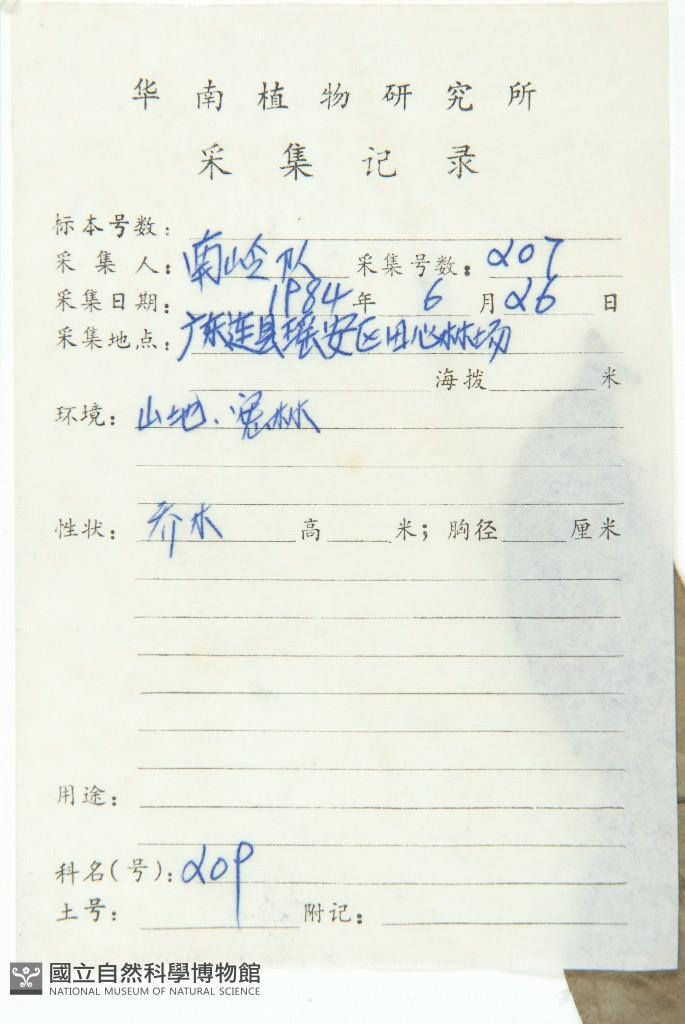 华南植物研究所
采集记录
标本号数：
采集人：南岭队 采集号数：207
采集日期：1984年6月26日
采集地点：广东连县瑶安区田心林场
海拨 米
环境：山地、密林
性状：乔木 高 米；胸径 厘米
用途：
科名(号)：209
土号： 附记：
國立自然科學博物館
NATIONAL MUSEUM OF NATURAL SCIENCE